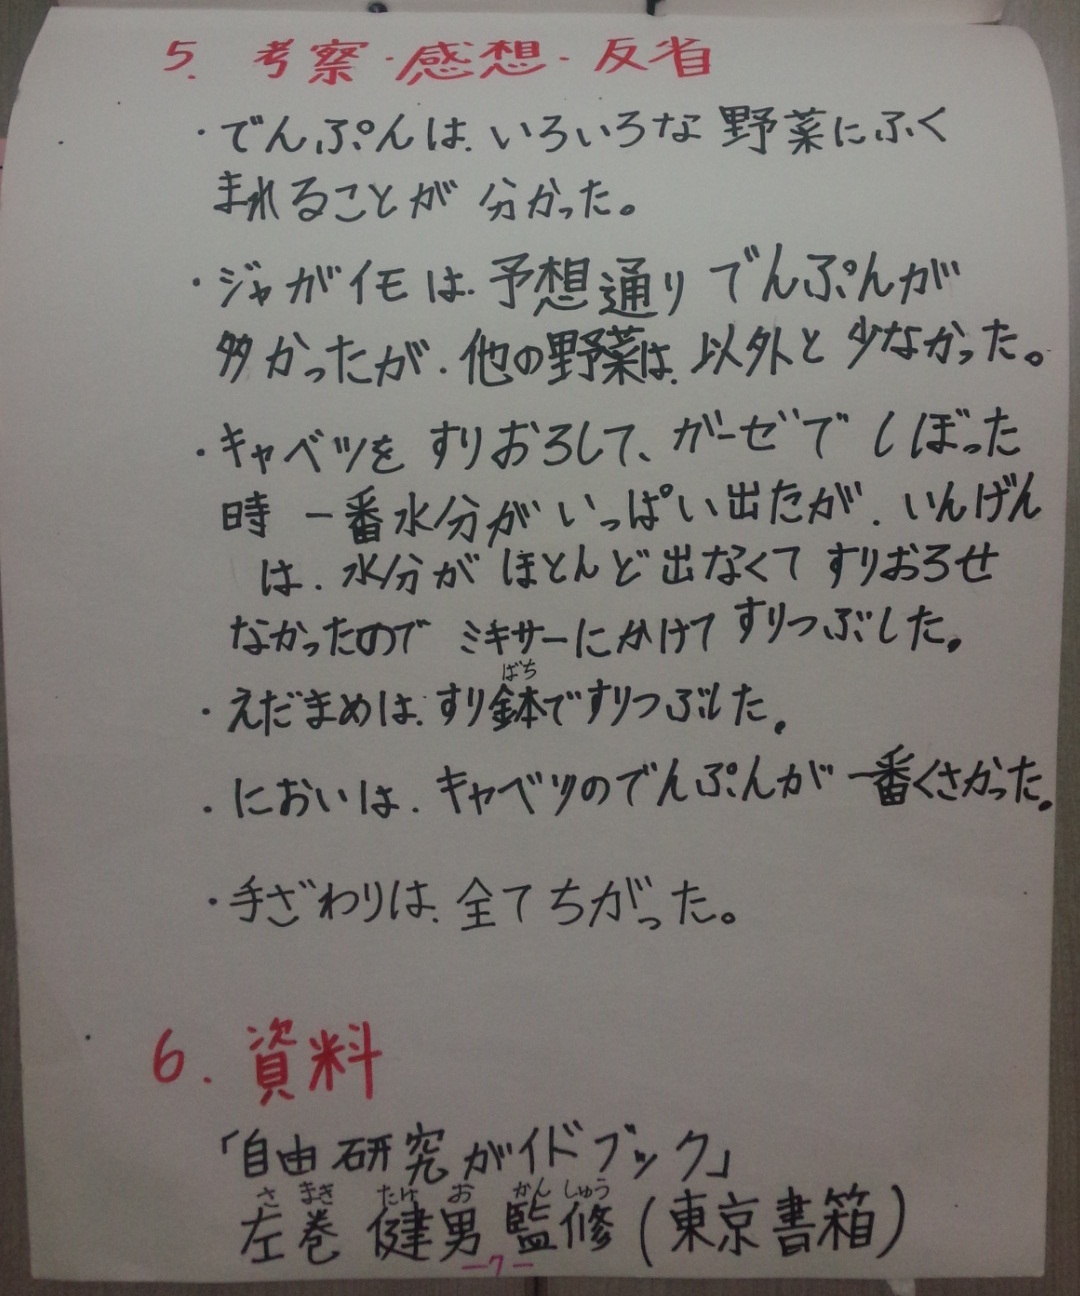 5. 考察・感想・反省
・でんぷんは、いろいろな野菜にふく
まれることが分かった。
・ジャガイモは、予想通りでんぷんが
多かったが、他の野菜は、以外と少なかった。
・キャベツをすりおろして、ガーゼでしぼった
時一番水分がいっぱい出たが、いんげん
は、水分がほとんど出なくてすりおろせ
なかったのでミキサーにかけてすりつぶした。
ばち
・えだまめは、すり鉢ですりつぶした。
・においは、キャベツのでんぷんが一番くさかった。
・手ざわりは、全てちがった。
6. 資料
「自由研究ガイドブック」
さまき たけお かんしゅう
左巻 健男 監修 (東京書箱)
-7-